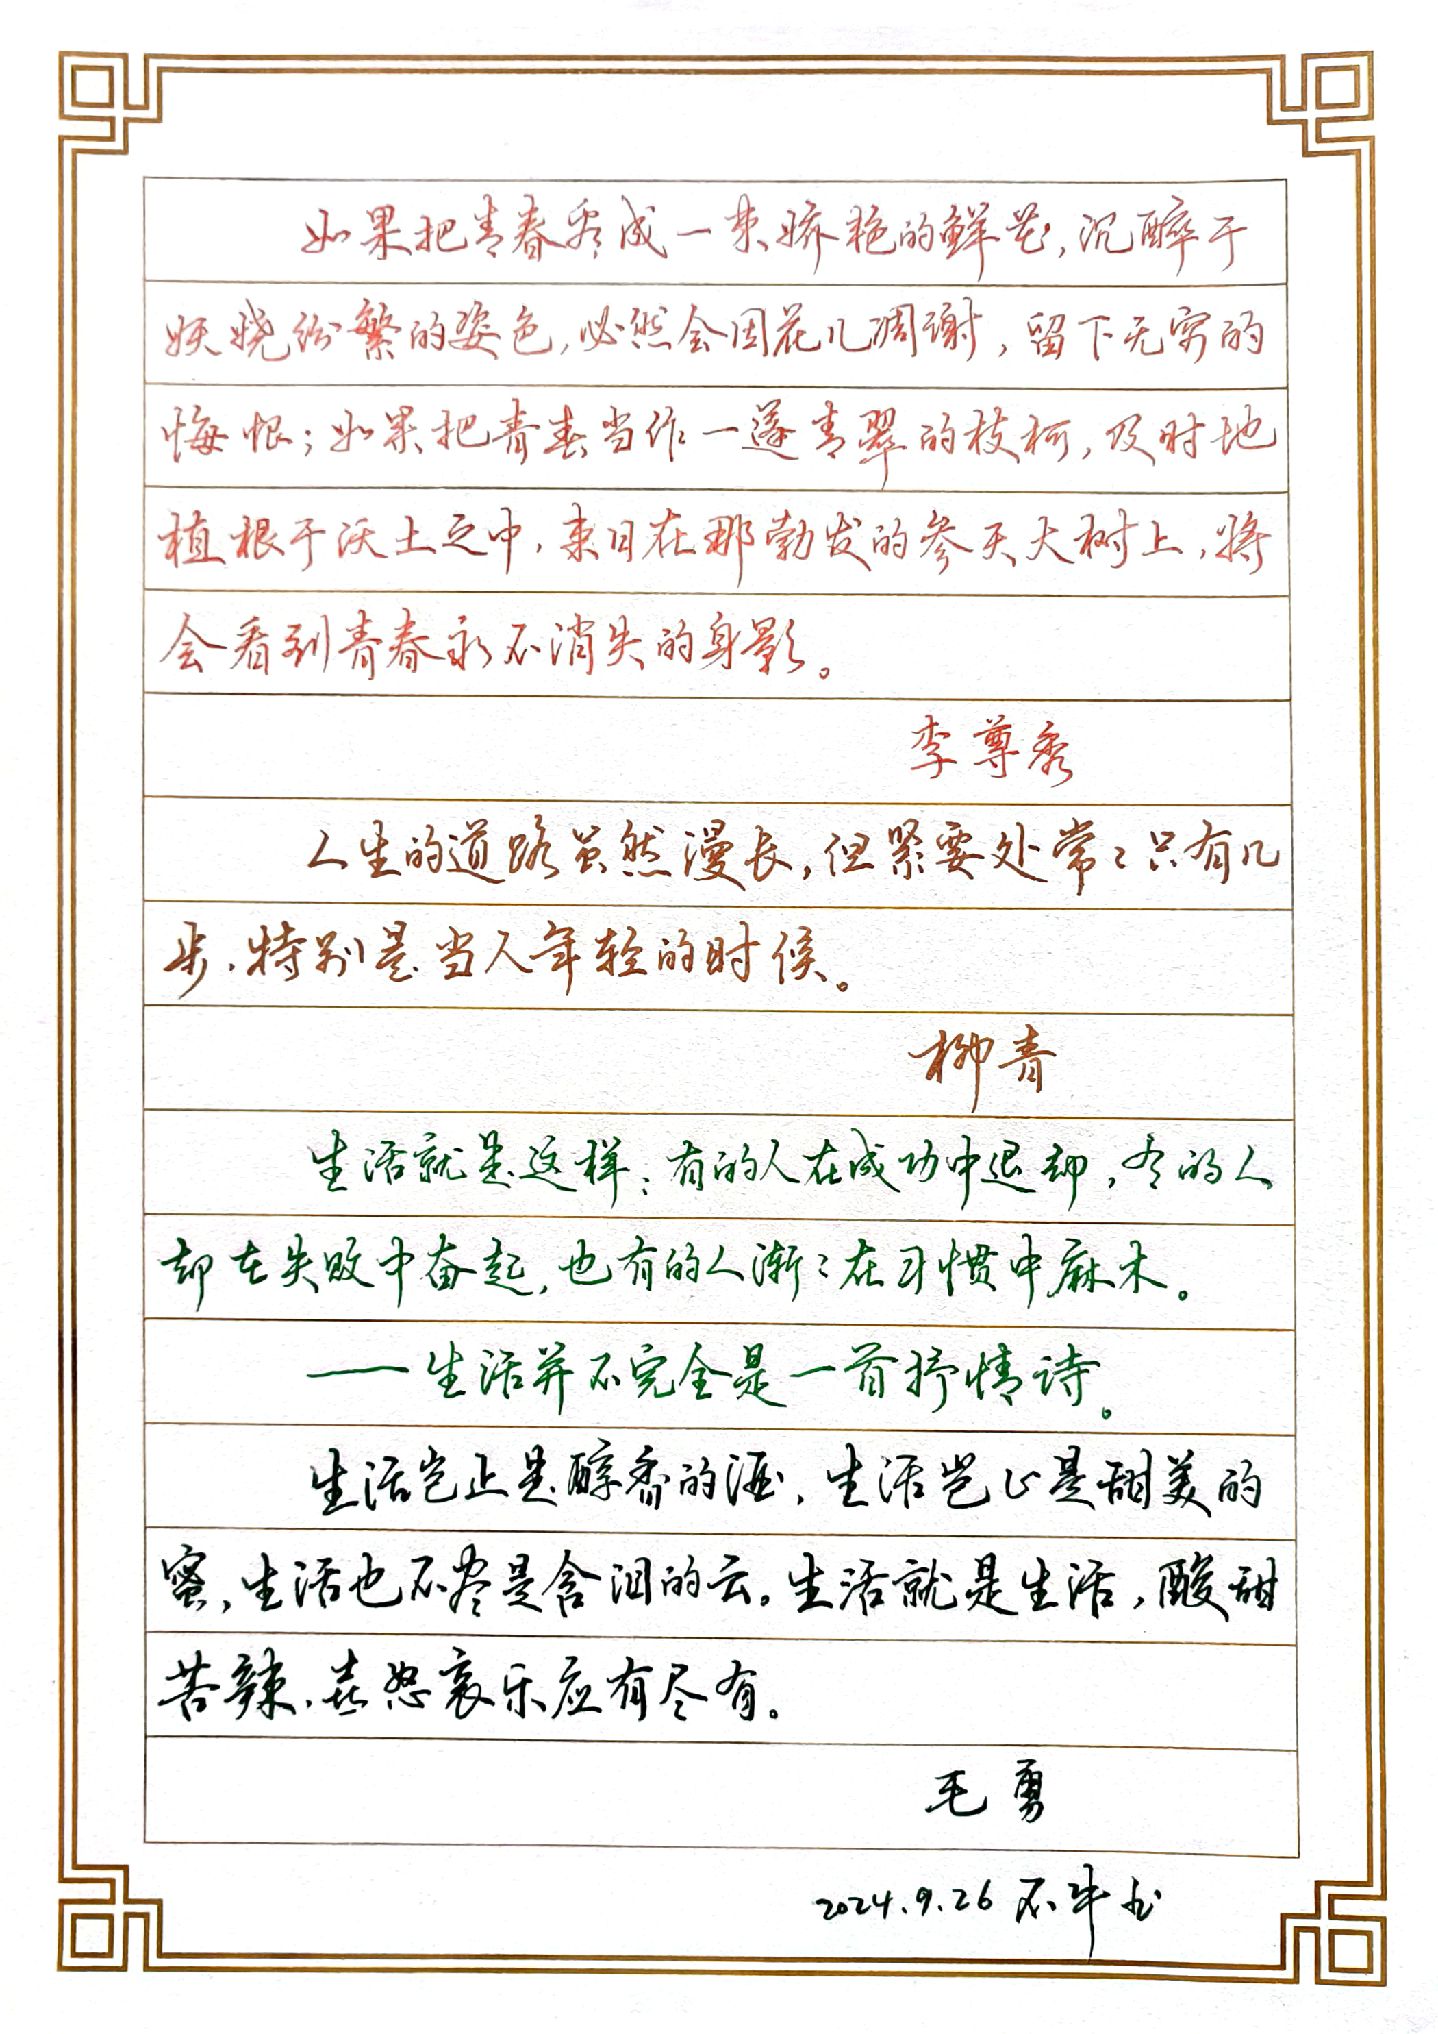 如果把青春看成一束娇艳的鲜花，沉醉于
妖娆纷繁的姿色，必然会因花儿凋谢，留下无穷的
悔恨；如果把青春当作一蓬青翠的枝柯，及时地
植根于沃土之中，来日在那勃发的参天大树上，将
会看到青春永不消失的身影。
李尊秀
人生的道路虽然漫长，但紧要处常々只有几
步，特别是当人年轻的时候。
柳青
生活就是这样：有的人在成功中退却，有的人
却在失败中奋起，也有的人渐々在习惯中麻木。
——生活并不完全是一首抒情诗。
生活岂止是醇香的酒，生活岂止是甜美的
蜜，生活也不尽是含泪的云。生活就是生活，酸甜
苦辣、喜怒哀乐应有尽有。
毛勇
2024.9.26 石牛书